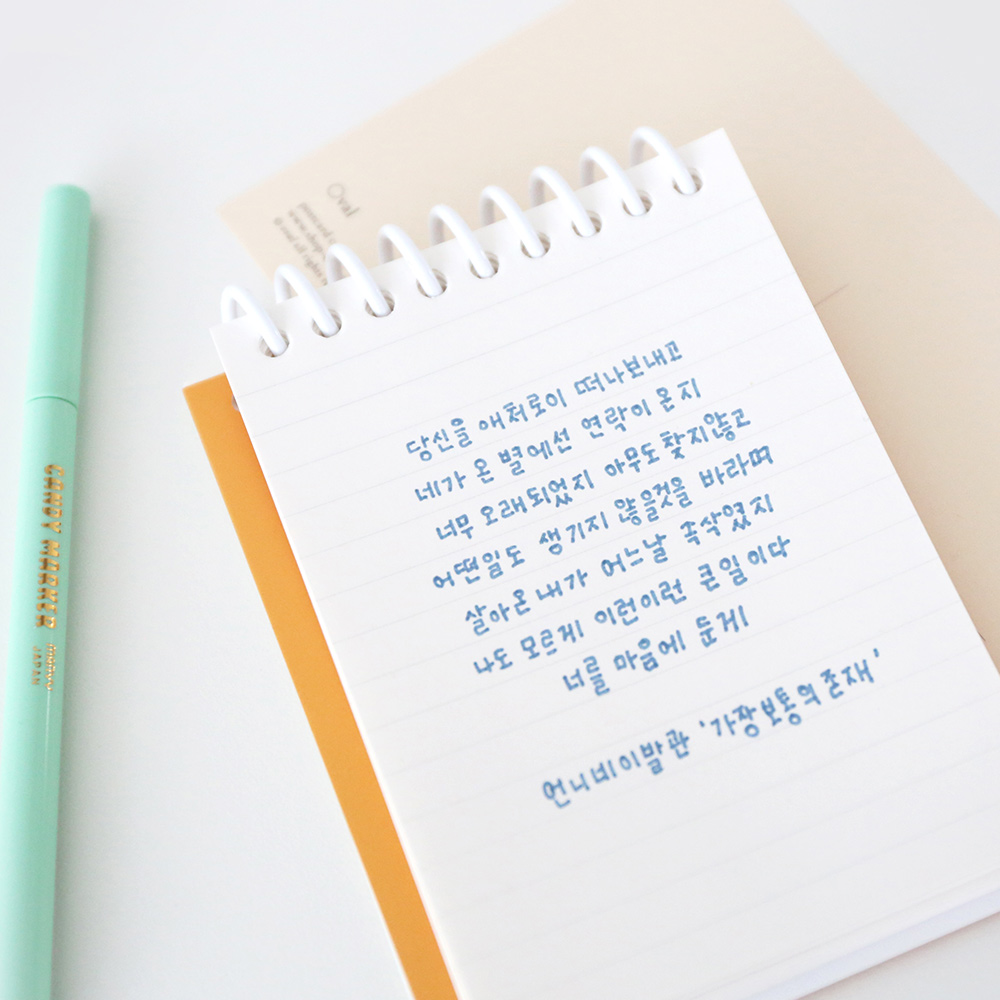 당신을 애처로이 떠나보내고
네가 온 별에선 연락이 온지
너무 오래되었지 아무도 찾지않고
어떤일도 생기지 않을것을 바라며
살아온 내가 어느날 속삭였지
나도 모르게 이런이런 큰일이다
너를 마음에 둔게
언니네이발관 '가장보통의존재'
CANDY MARKER
JAPAN
Oval
postcard